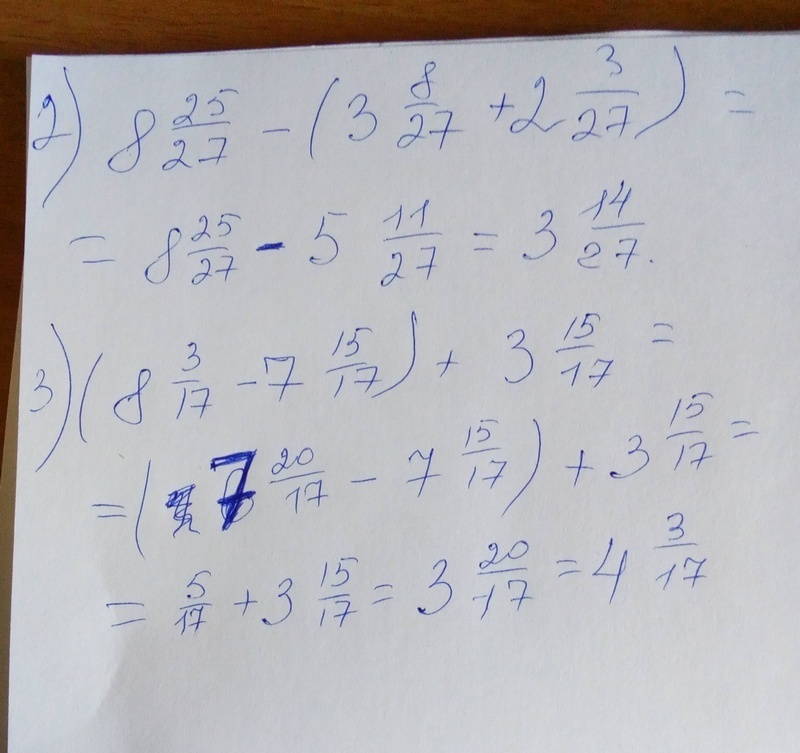 2) 8 25/27 - (3 8/27 + 2 3/27) =
= 8 25/27 - 5 11/27 = 3 14/27.
3) (8 3/17 - 7 15/17) + 3 15/17 =
= (7 20/17 - 7 15/17) + 3 15/17 =
= 5/17 + 3 15/17 = 3 20/17 = 4 3/17